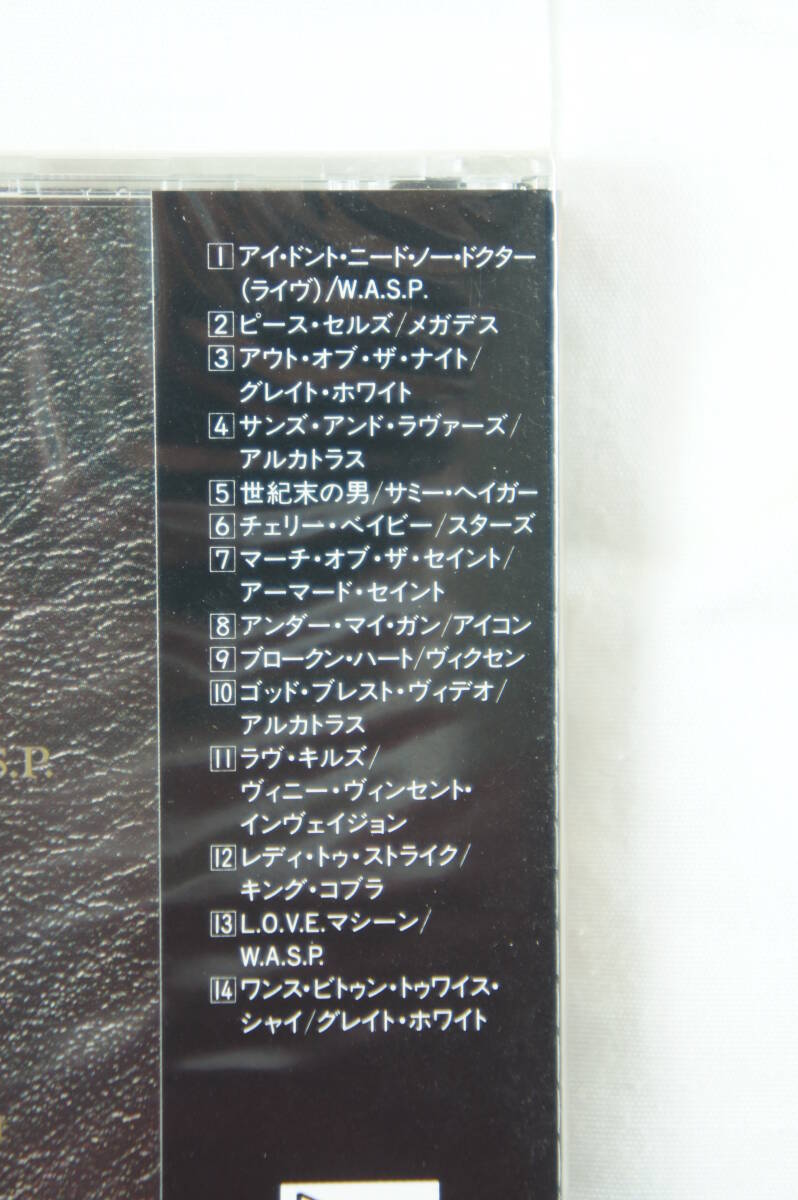 1 アイ・ドント・ニード・ノー・ドクター
(ライヴ)/W.A.S.P.
2 ピース・セルズ/メガデス
3 アウト・オブ・ザ・ナイト/
グレイト・ホワイト
4 サンズ・アンド・ラヴァーズ/
アルカトラス
5 世紀末の男/サミー・ヘイガー
6 チェリー・ベイビー/スターズ
7 マーチ・オブ・ザ・セイント/
アーマード・セイント
8 アンダー・マイ・ガン/アイコン
9 ブロークン・ハート/ヴィクセン
10 ゴッド・ブレスト・ヴィデオ/
アルカトラス
11 ラヴ・キルズ/
ヴィニー・ヴィンセント・
インヴェイジョン
12 レディ・トゥ・ストライク/
キング・コブラ
13 L.O.V.E.マシーン/
W.A.S.P.
14 ワンス・ビトゥン・トゥワイス・
シャイ/グレイト・ホワイト
S.P.